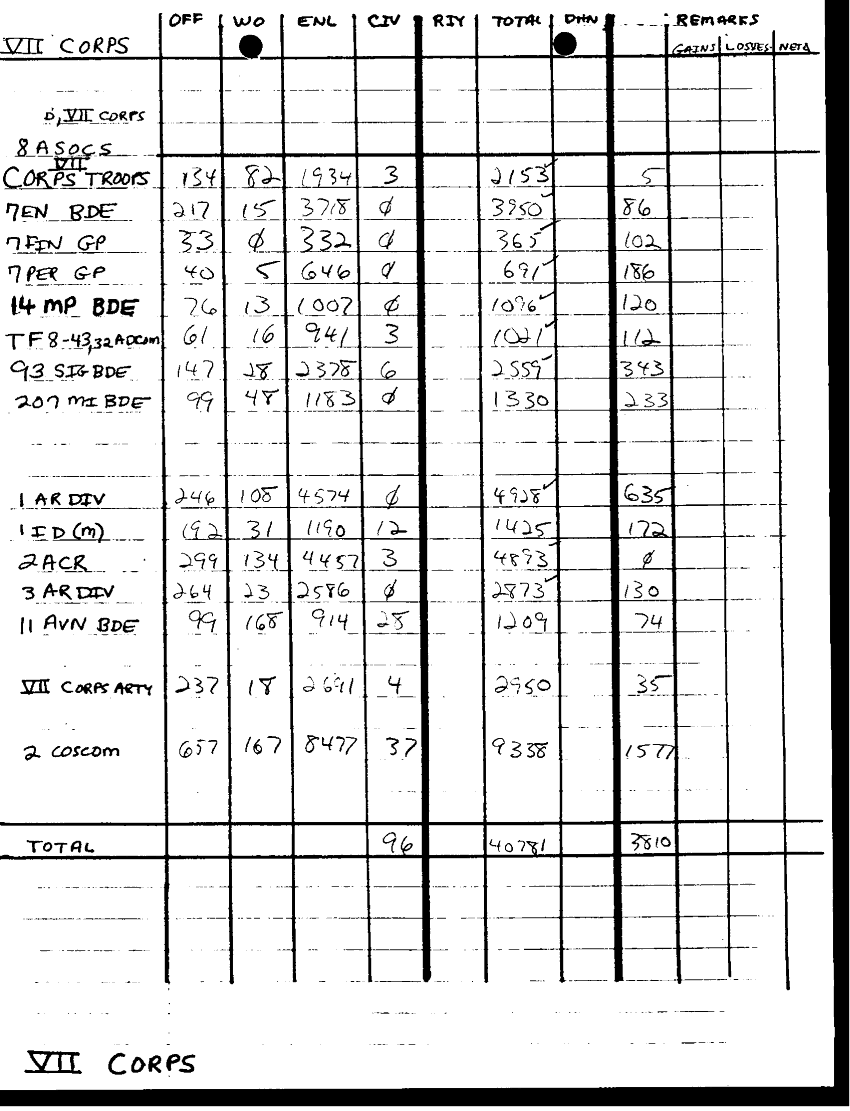 OFF WO ENL CIV RTY TOTAL DHN REMARKS
VII CORPS GAINS LOSSES NETΔ
D, VII CORPS
8 ASOCS
VII
CORPS TROOPS 134 82 1934 3 2153✓ 5
7EN BDE 217 15 3718 ∅ 3950✓ 86
7FIN GP 33 ∅ 332 ∅ 365✓ 102
7PER GP 40 5 646 ∅ 691✓ 186
14 MP BDE 76 13 1007 ∅ 1096✓ 120
TF8-43,32 ADCOM 61 16 941 3 1021✓ 112
93 SIG BDE 147 28 2378 6 2559✓ 343
207 MI BDE 99 48 1183 ∅ 1330 233
1 AR DIV 246 108 4574 ∅ 4928✓ 635
1 ID (M) 192 31 1190 12 1425 172
2ACR 299 134 4457 3 4893✓ ∅
3 AR DIV 264 23 2586 ∅ 2873✓ 130
11 AVN BDE 99 168 914 28 1209 74
VII CORPS ARTY 237 18 2691 4 2950 35
2 COSCOM 657 167 8477 37 9338 1577
TOTAL 96 40781 3810
VII CORPS